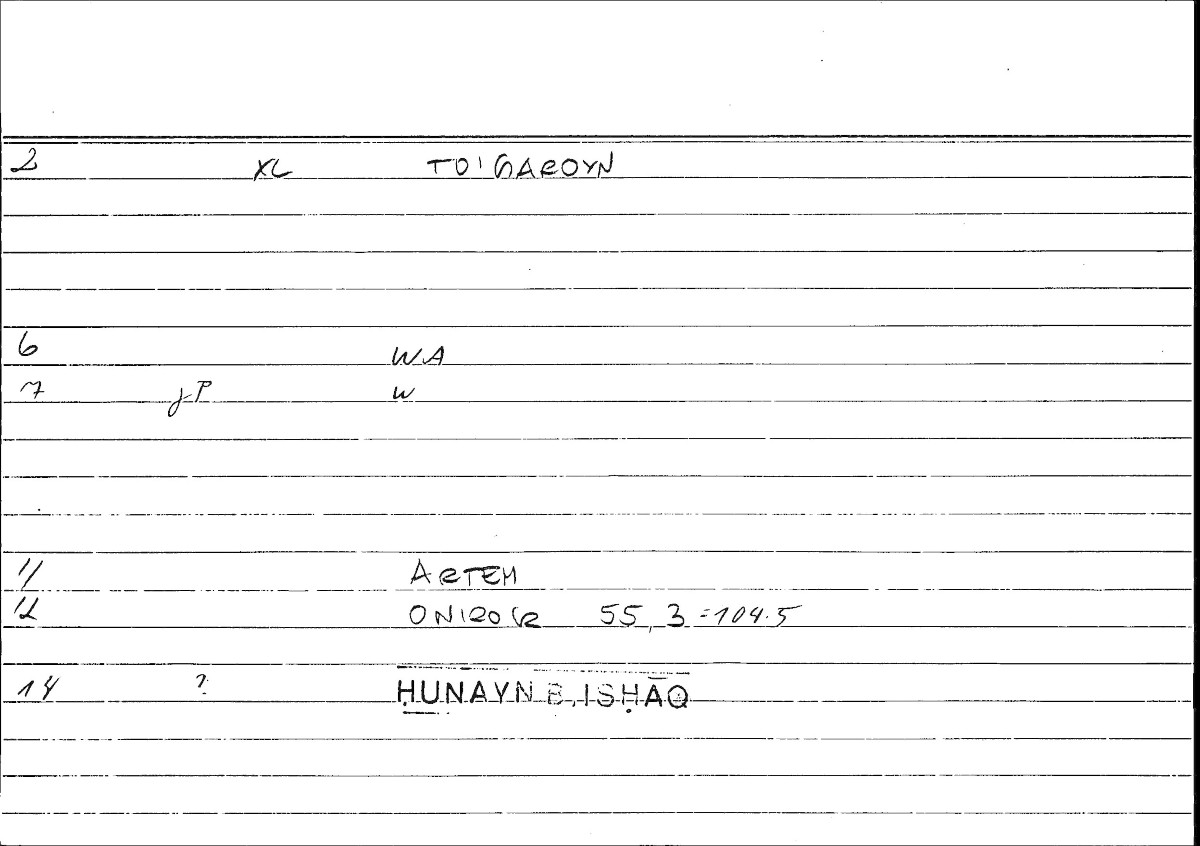 2 XL TO' GAROYN
6 WA
7 jP W
11 ARTEM
12 ONIROKR 55,3 = 104.5
14 ? ḤUNAYN B. ISḤĀQ